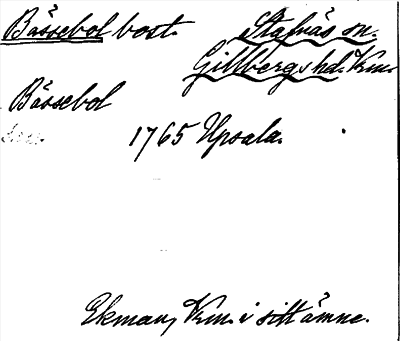 Båssebol bost. Stafnäs sn.
Gillbergs hd. Krm.
Båssebol
1765 Upsala.
Ekman, Krm. i sitt ämne.